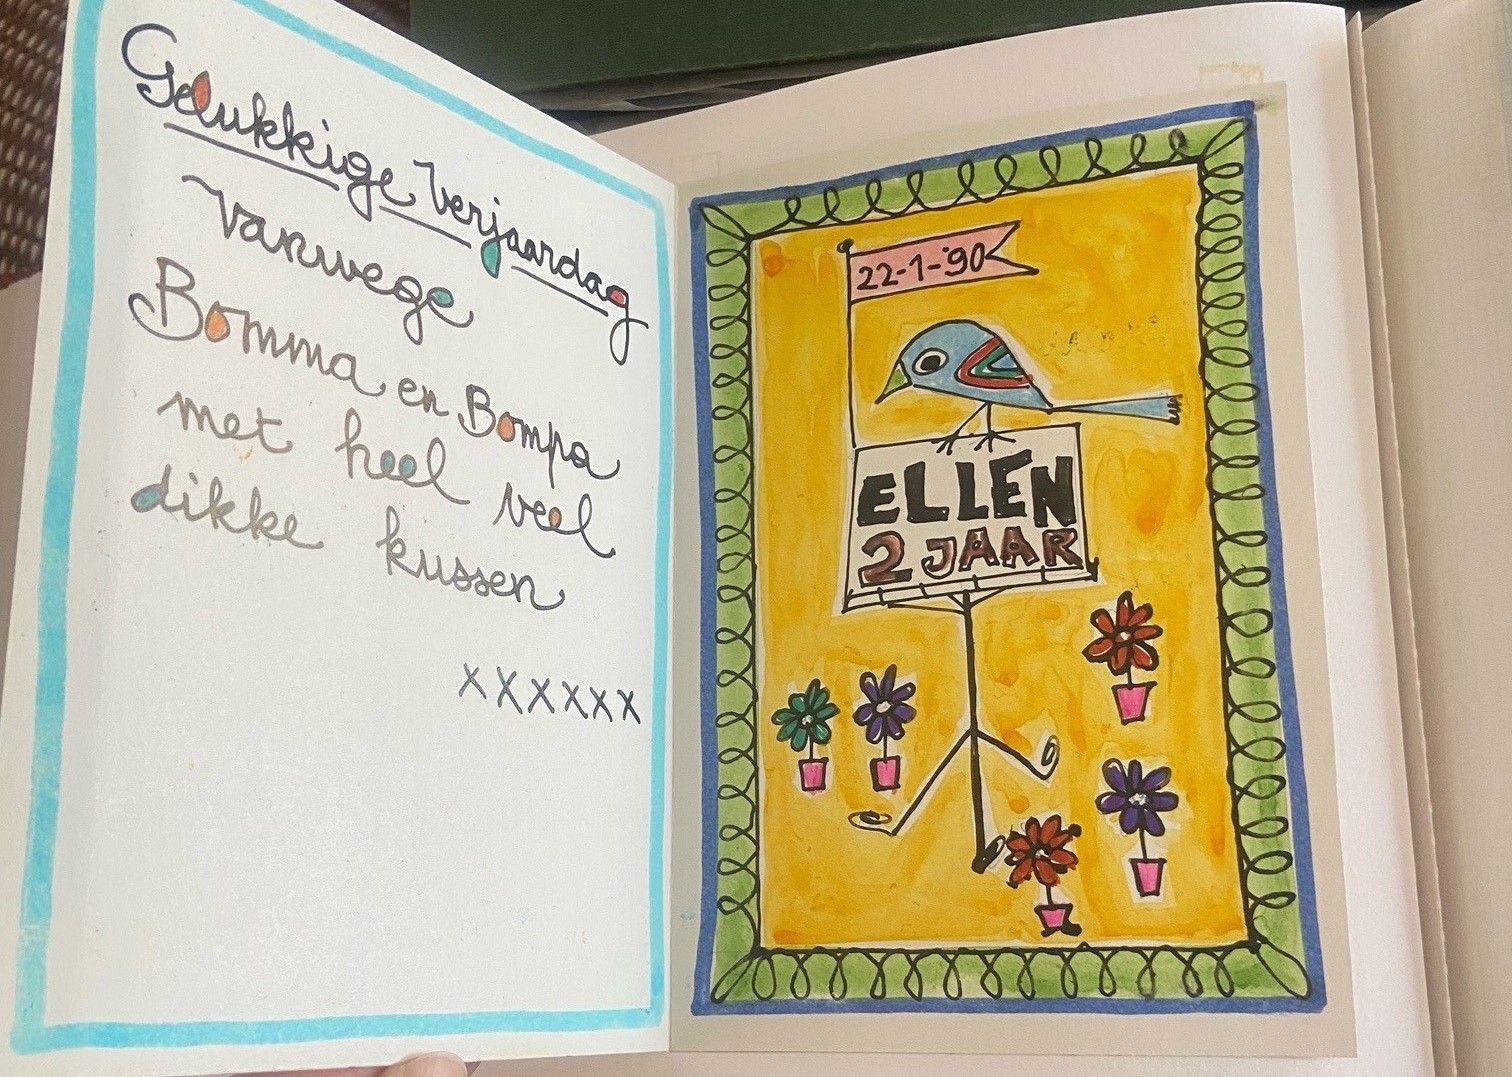 Gelukkige Verjaardag
vanwege
Bomma en Bompa
met heel veel
dikke kussen
xxxxxx
22-1-'90
ELLEN
2 JAAR